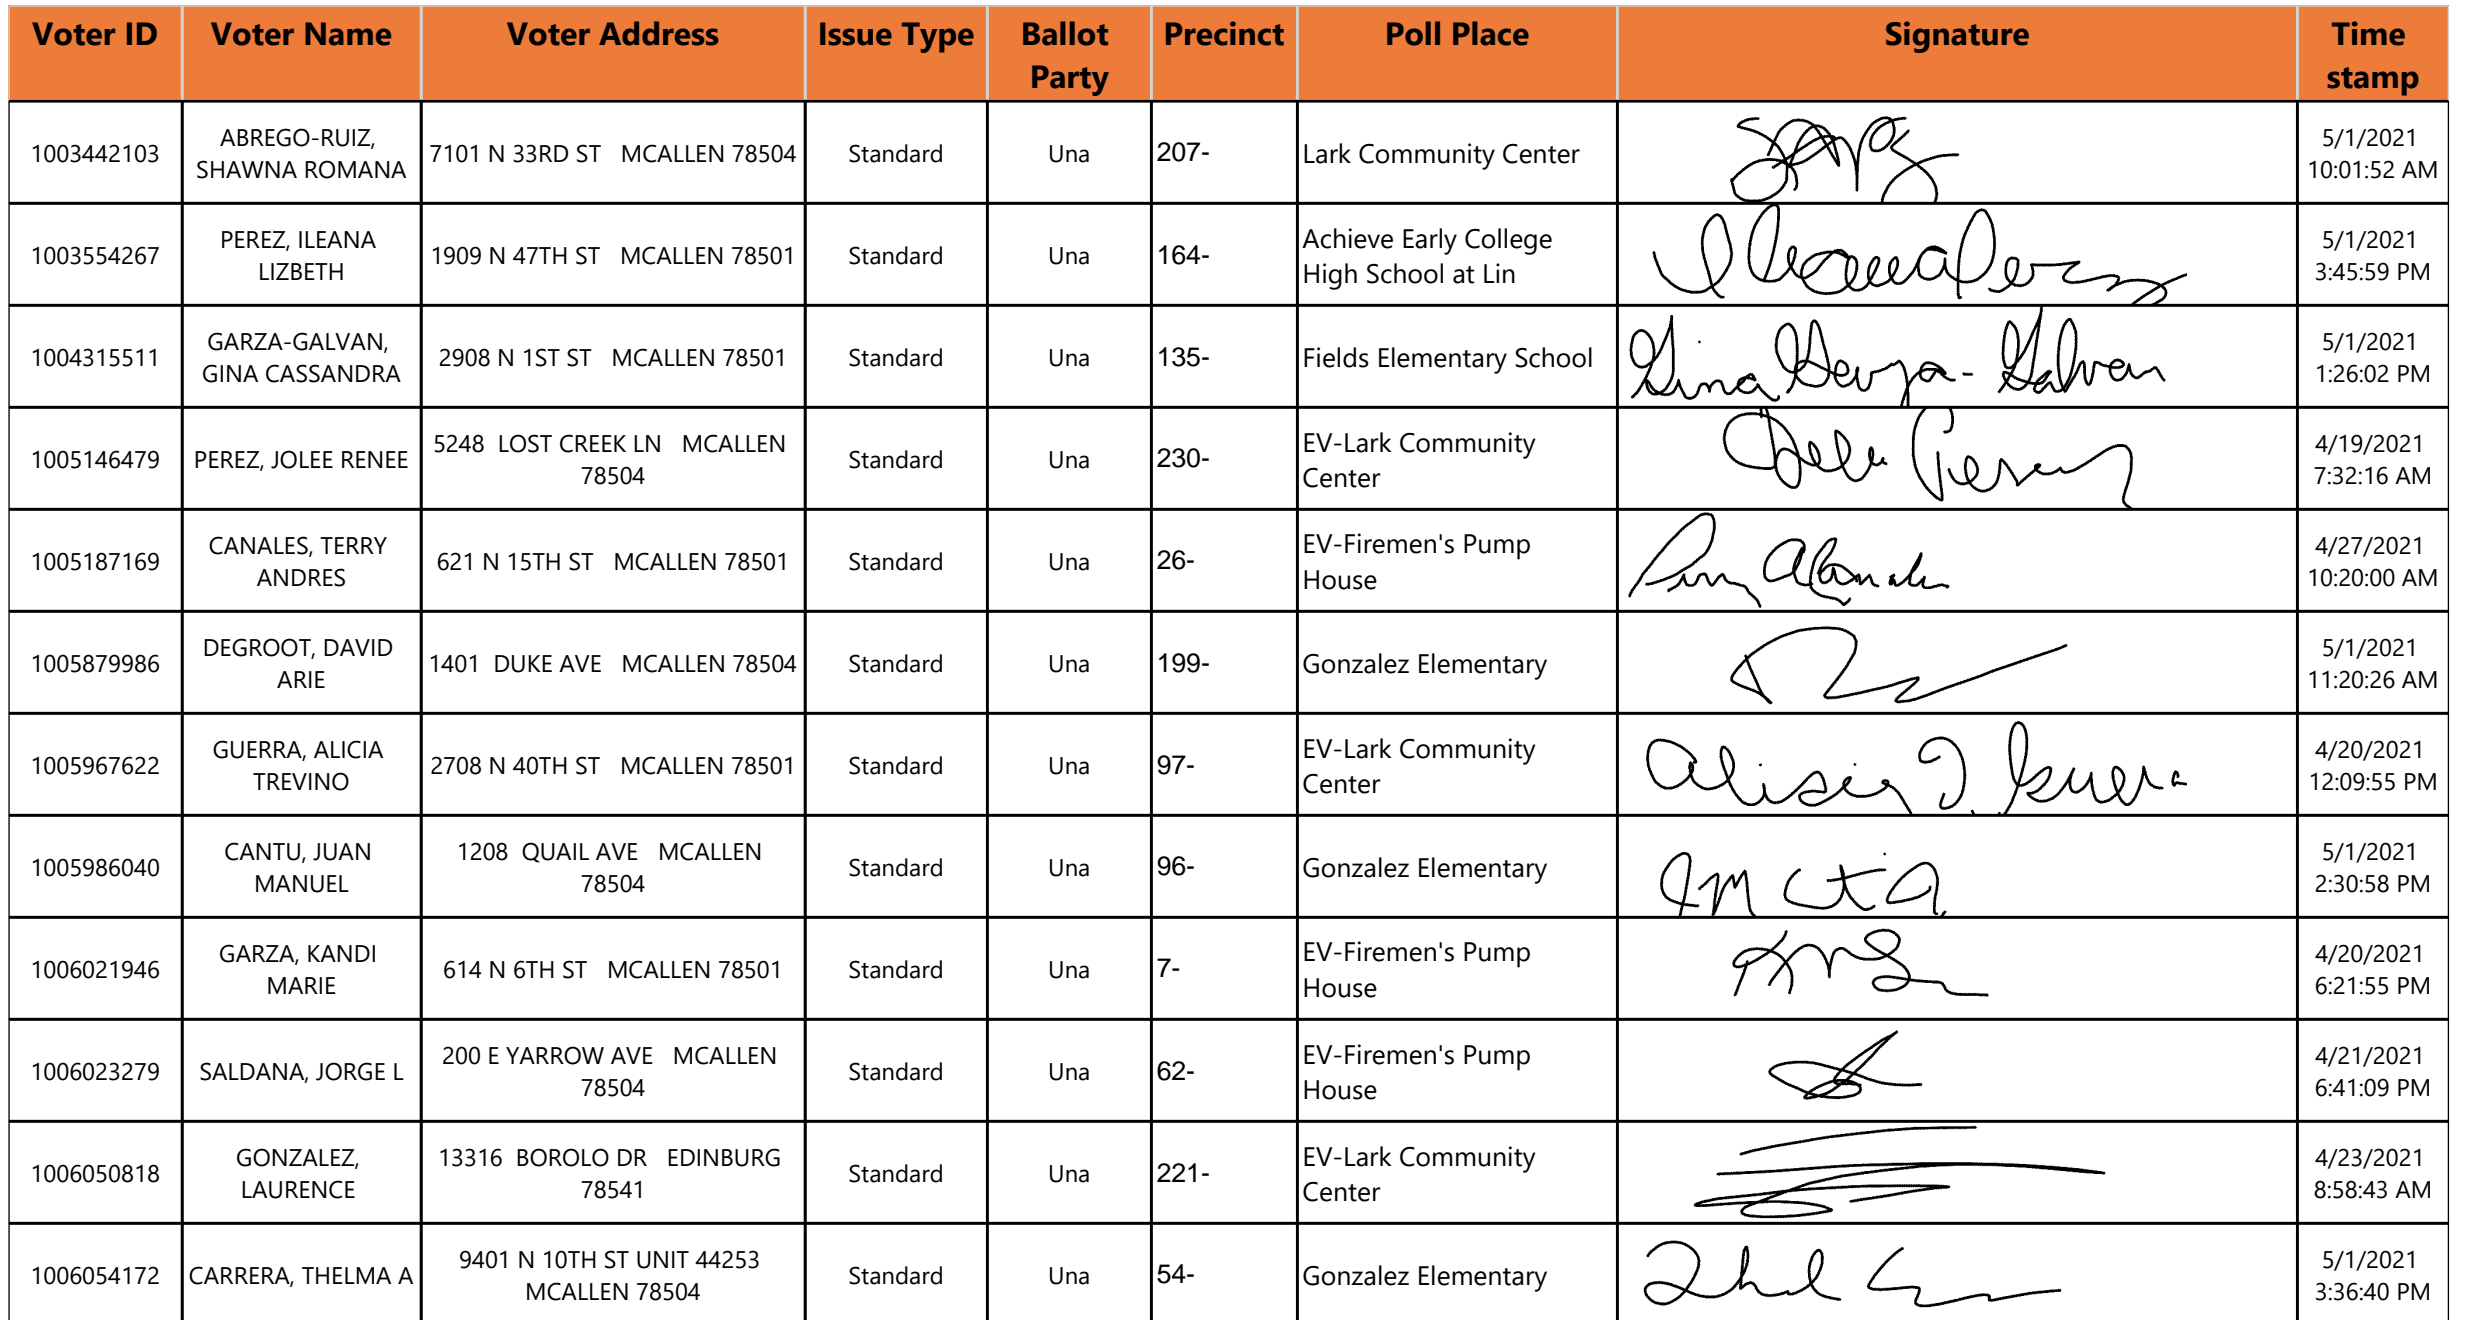 Voter ID Voter Name Voter Address Issue Type Ballot Party Precinct Poll Place Signature Time stamp
1003442103 ABREGO-RUIZ, SHAWNA ROMANA 7101 N 33RD ST MCALLEN 78504 Standard Una 207- Lark Community Center 5/1/2021 10:01:52 AM
1003554267 PEREZ, ILEANA LIZBETH 1909 N 47TH ST MCALLEN 78501 Standard Una 164- Achieve Early College High School at Lin Ileana Perez 5/1/2021 3:45:59 PM
1004315511 GARZA-GALVAN, GINA CASSANDRA 2908 N 1ST ST MCALLEN 78501 Standard Una 135- Fields Elementary School Gina Garza-Galvan 5/1/2021 1:26:02 PM
1005146479 PEREZ, JOLEE RENEE 5248 LOST CREEK LN MCALLEN 78504 Standard Una 230- EV-Lark Community Center 4/19/2021 7:32:16 AM
1005187169 CANALES, TERRY ANDRES 621 N 15TH ST MCALLEN 78501 Standard Una 26- EV-Firemen's Pump House 4/27/2021 10:20:00 AM
1005879986 DEGROOT, DAVID ARIE 1401 DUKE AVE MCALLEN 78504 Standard Una 199- Gonzalez Elementary 5/1/2021 11:20:26 AM
1005967622 GUERRA, ALICIA TREVINO 2708 N 40TH ST MCALLEN 78501 Standard Una 97- EV-Lark Community Center Alicia T. Guerra 4/20/2021 12:09:55 PM
1005986040 CANTU, JUAN MANUEL 1208 QUAIL AVE MCALLEN 78504 Standard Una 96- Gonzalez Elementary 5/1/2021 2:30:58 PM
1006021946 GARZA, KANDI MARIE 614 N 6TH ST MCALLEN 78501 Standard Una 7- EV-Firemen's Pump House 4/20/2021 6:21:55 PM
1006023279 SALDANA, JORGE L 200 E YARROW AVE MCALLEN 78504 Standard Una 62- EV-Firemen's Pump House 4/21/2021 6:41:09 PM
1006050818 GONZALEZ, LAURENCE 13316 BOROLO DR EDINBURG 78541 Standard Una 221- EV-Lark Community Center 4/23/2021 8:58:43 AM
1006054172 CARRERA, THELMA A 9401 N 10TH ST UNIT 44253 MCALLEN 78504 Standard Una 54- Gonzalez Elementary 5/1/2021 3:36:40 PM